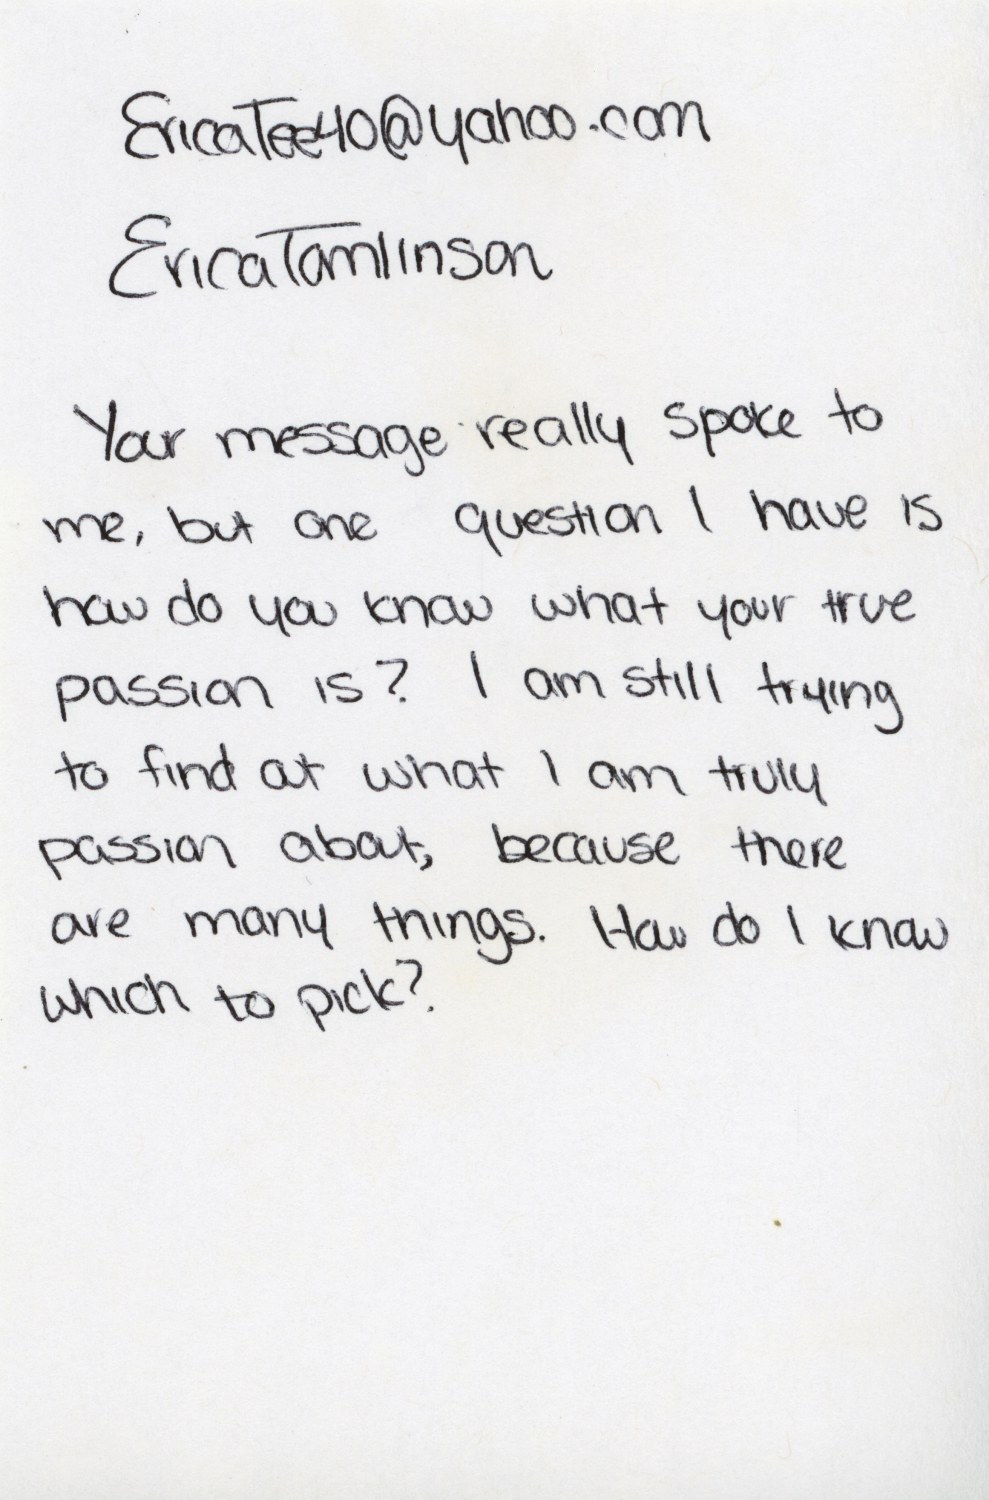 EricaTee40@yahoo.com
Erica Tomlinson
Your message really spoke to
me, but one question I have is
how do you know what your true
passion is? I am still trying
to find out what I am truly
passion about, because there
are many things. How do I know
which to pick?